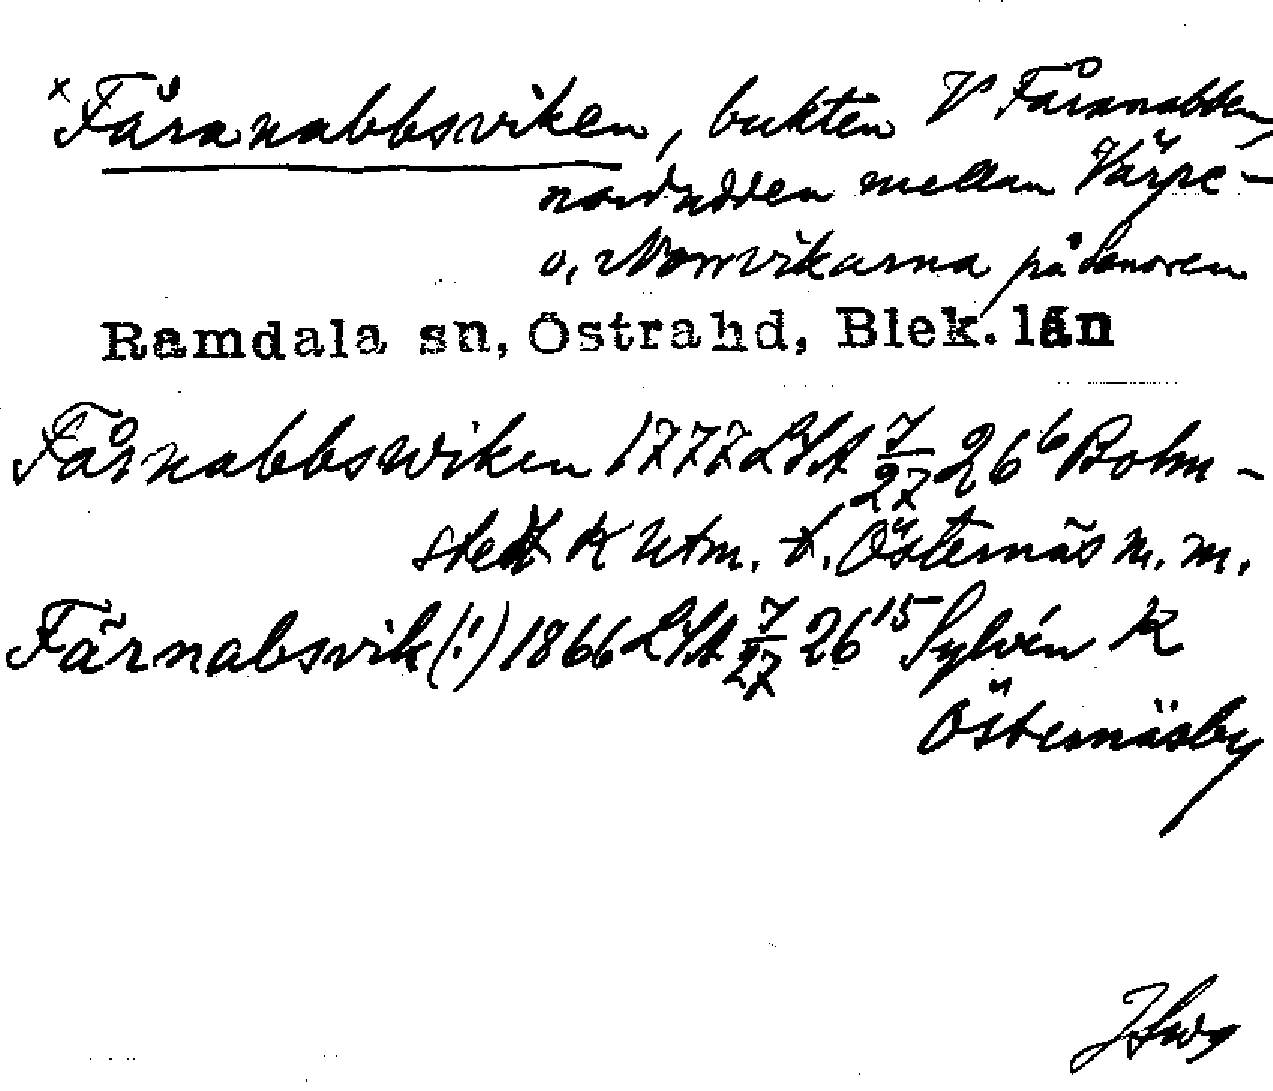 x Fåranabbsviken, bukten V Fåranabben,
nordudden mellan Värpe-
o. Norrvikarna på Senoren
Ramdala sn, Östra hd, Blek. län
Fårnabbswiken 1777 LSA 7/27 26⁶ Bohm-
stedt K Utm. t. Östernäs m. m.
Färnabsvik (!) 1866 LSA 7/27 26¹⁵ Sylvén K
Östernäsby